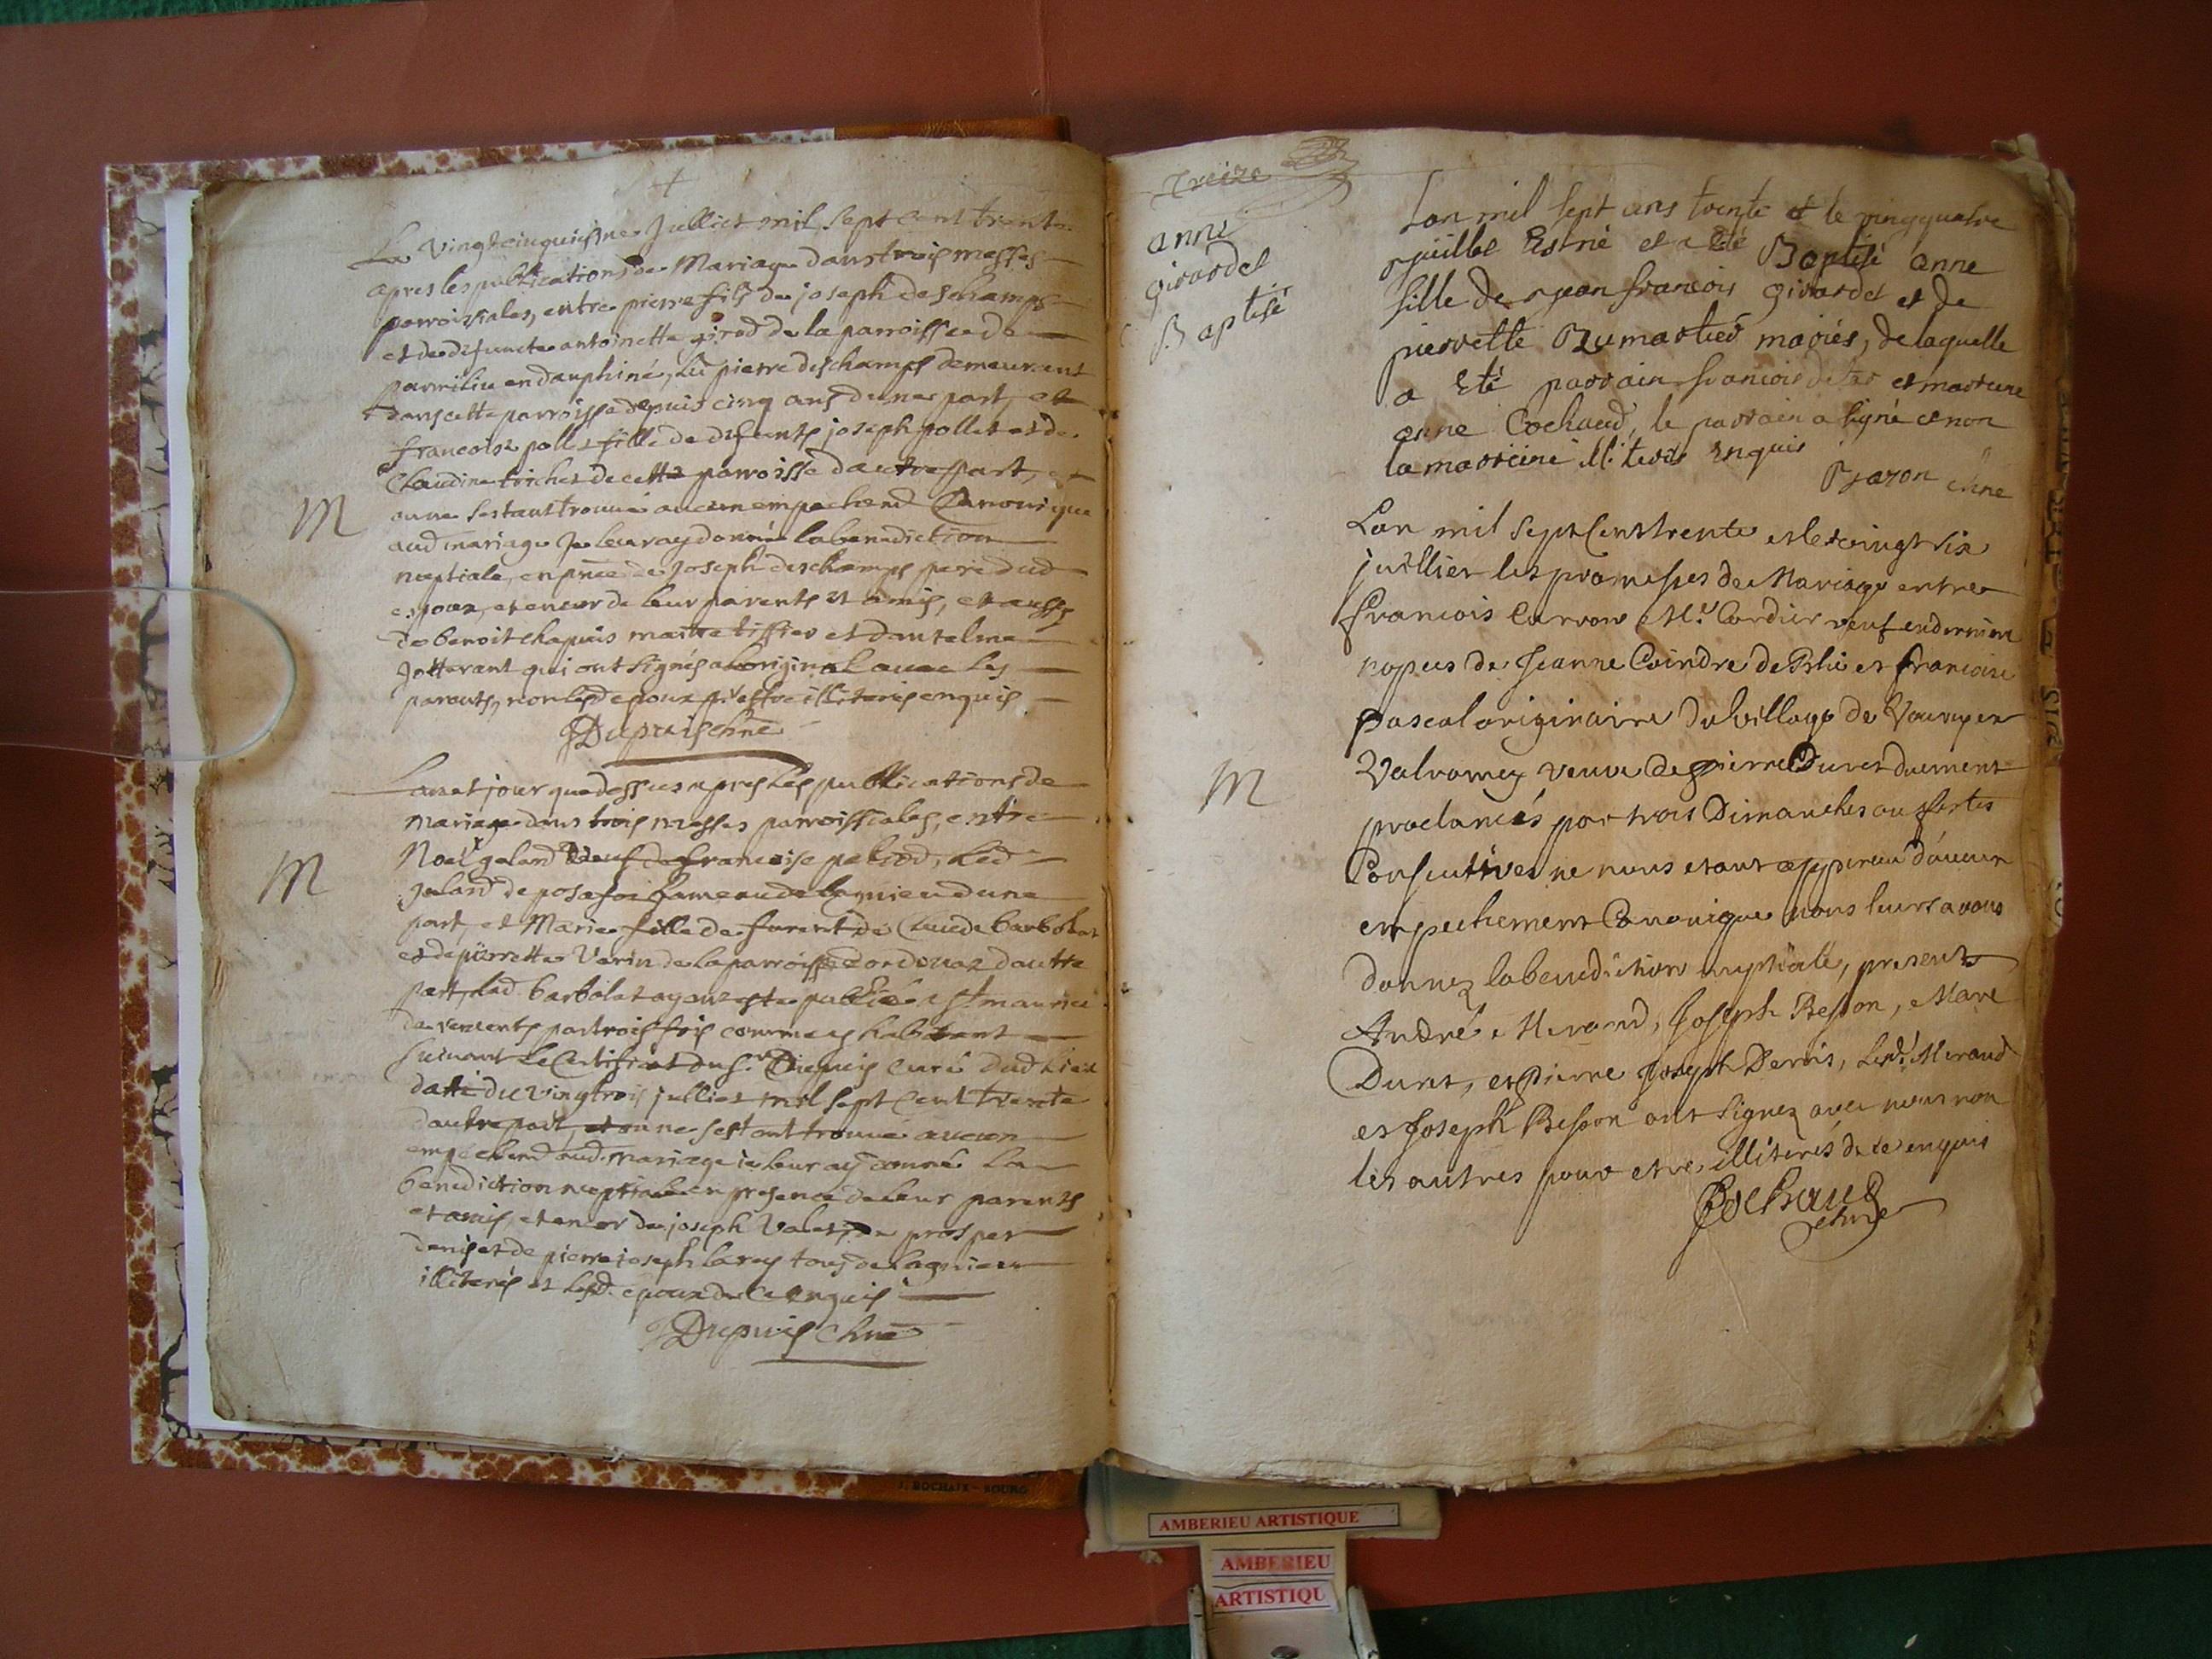 Le vingtcinquiesme Julliet mil sept cent trente
apres les publications de Mariage dans trois messes
parroissiales, entre pierre fils de joseph deschamps
et de defuncte antoinette girod de la parroisse de
parmilieu en dauphiné, led pierre deschamps demeurant
dans cette parroisse depuis cinq ans d'une part, et
francoise pollet fille de defunts joseph pollet et de
Claudine trichet de cette parroisse d'autre part, et
M
on ne sestant trouvé aucun empechemt Canonique
aud mariage Je leur ay donné la benediction
nuptiale, en pnce de Joseph deschamps pere dud
epoux, et encor de leur parents et amis, et aussy
de benoit chapuis maitre tissier et d'antelme
Jetterant qui ont signés a loriginal avec les
parents, non lesd epoux pr estre illiteres enquis
JDupuis chne
Lan et jour que dessus apres les publications de
mariage dans trois messes parroissiales, entre
M
Noel galand veuf de francoise
Jaland de posafol hameau de lagnieu d'une
part, et Marie fille de furent de Claude barbolat
et de pierrette Verin de la parroisse d'ordonaz d'autre
part, lad. barbolat ayant esté publiée a St maurice
de remens par trois fois comme y habitant
suivant le Certificat du Sr. Dupuis curé dud lieu
datté du vingtrois julliet mil sept cent trente
d'autre part, et on ne sestant trouvé aucun
empechemt aud. mariage je leur ay donné la
benediction nuptiale en presence de leur parents
et amis, et encor de joseph Valet, de prosper
denis et de pierre joseph larey tous de lagnieu
illiterés et lesd. epoux de ce enquis
JDupuis chne
Treize
anne
girardet
Baptisé
Lan mil sept cens trente et le vingquatre
juillet Est né et a Eté Baptisé anne
fille de jean francois girardet et de
pierrette Dumartier mariés, de laquelle
a Eté parrain francois et marreine
anne Cochaud, le parrain a signé et non
la marreine illiterée Enquis
Bazon chne
Lan mil sept Cent trente et le vingt six
juillier les promesses de Mariage entre
francois Carron Me. Cordier veuf en dernieres
nopces de Jeanne Coindre de et francoise
Pascal originaire du village de en
M
Valromey veuve de pierre Duret duement
proclamés par trois Dimanches ou festes
Consecutives ne nous etant apparu d'aucun
empechement Canonique nous leurs avons
donnez la benediction nuptiale, presents
André Merand, Joseph Besson, Marc
Duret, et Pierre Joseph Denis, lesd. Merand
et Joseph Besson ont signez avec nous non
les autres pour etre illiterés de ce enquis
Cochaud
chne
J. ROCHAIX - BOURG
AMBERIEU ARTISTIQUE
AMBERIEU
ARTISTIQU